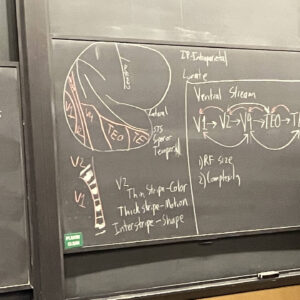 IP-Intraparietal
Lunate
Ventral Stream
V1→V2→V4→TEO→TE
1) RF size
2) Complexity
V1
V2
V4
TEO
TE
Lateral
STS
Temporal
V2
V1
V2
Thin Stripe-Color
Thick stripe-Motion
Interstripe-Shape
PLEASE